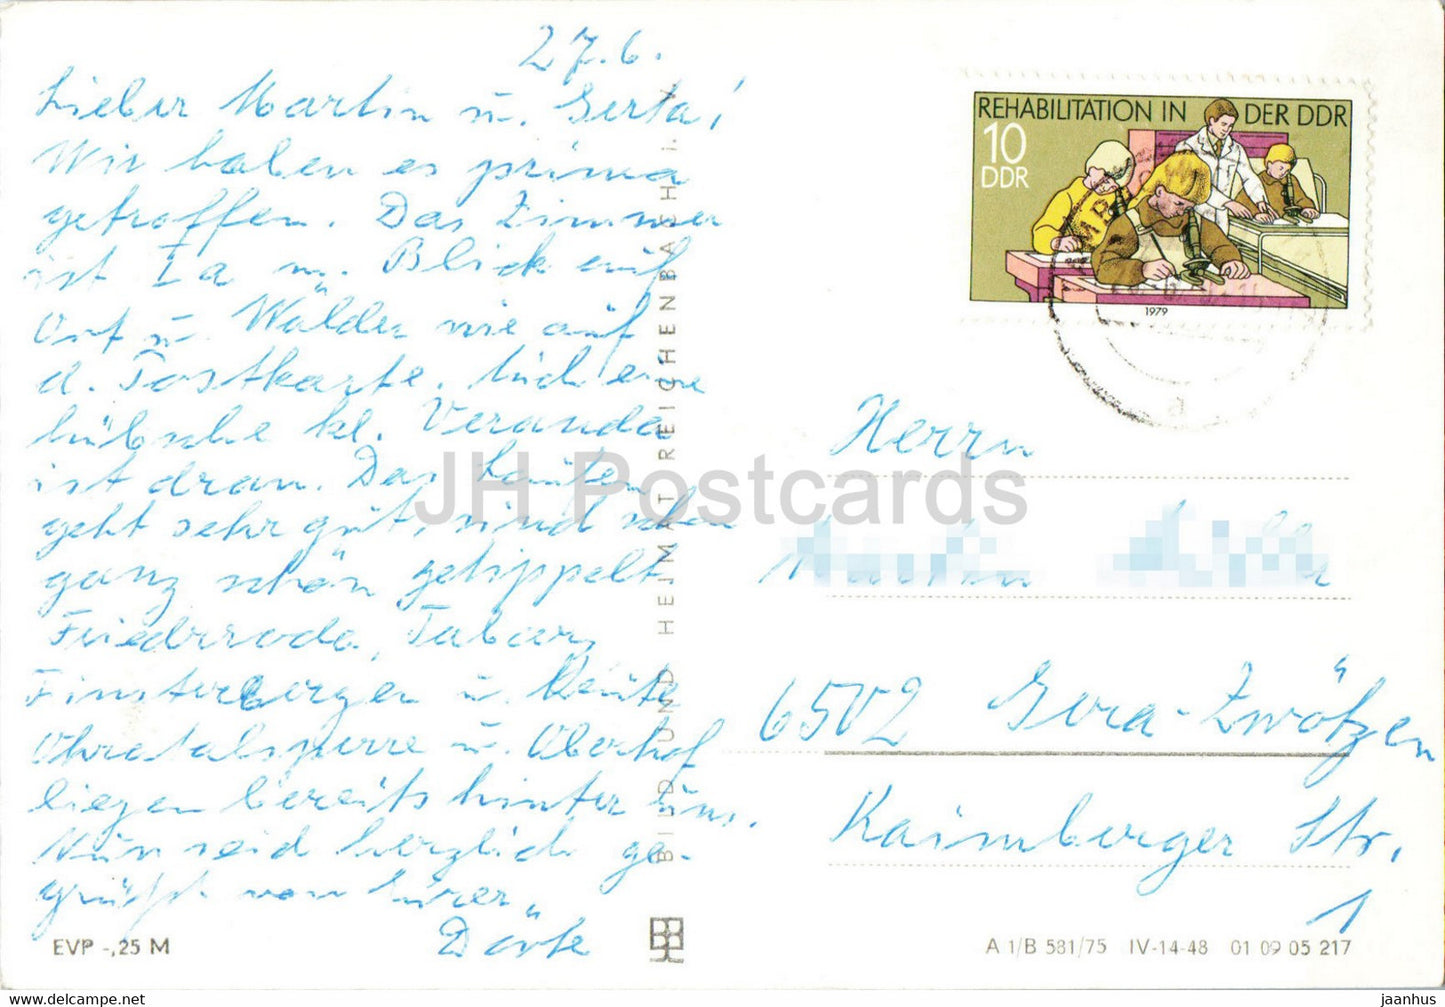 27.6.
Lieber Martin u. Gerta!
Wir haben es prima
getroffen. Das Zimmer
ist Ia m. Blick auf
Ort u. Wälder wie auf
d. Postkarte. Auch eine
hübsche kl. Veranda
ist dran. Das Laufen
geht sehr gut, sind schon
ganz schön getippelt
Friedrroda, Tabarz,
Finsterbergen u. heute
Ohratalsperre u. Oberhof
liegen bereits hinter uns.
Nun seid herzlich ge-
grüßt von Eurer
Dörte
EVP -,25 M
BILD UND HEIMAT REICHENBACH I. V.
REHABILITATION IN DER DDR
10
DDR
1979
Herrn
6502 Gera-Zwötzen
Kaimberger Str.
1
A 1/B 581/75 IV-14-48 01 09 05 217
JH Postcards
EUROPE - delcampe.net
jaanhus